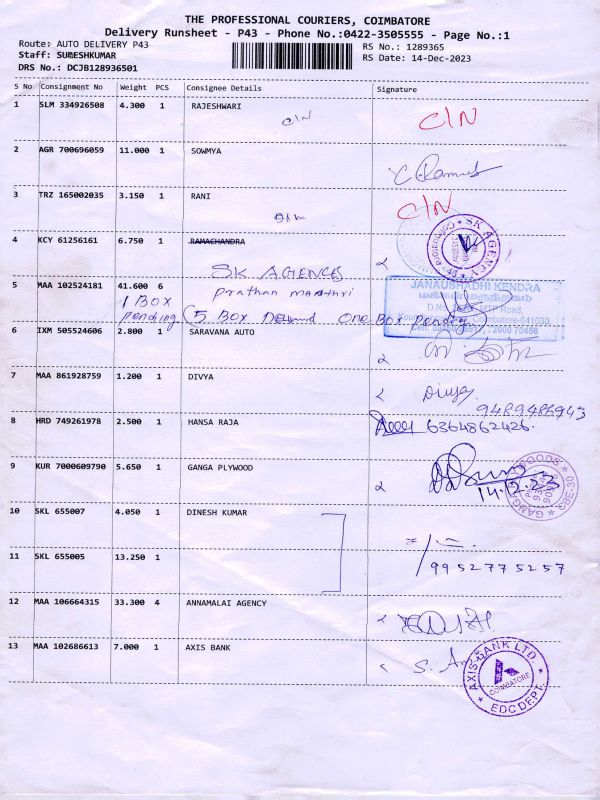 THE PROFESSIONAL COURIERS, COIMBATORE
Delivery Runsheet - P43 - Phone No.:0422-3505555 - Page No.:1
Route: AUTO DELIVERY P43
Staff: SURESHKUMAR
DRS No.: DCJB128936501
RS No.: 1289365
RS Date: 14-Dec-2023
S No Consignment No Weight PCS Consignee Details Signature
1 SLM 334926508 4.300 1 RAJESHWARI
C/N C/N
2 AGR 700696059 11.000 1 SOWMYA
3 TRZ 165002035 3.150 1 RANI C/N
4 KCY 61256161 6.750 1 RAMACHANDRA
SK AGENCY
SK AGENCES
5 MAA 102524181 41.600 6 Prathan manthri
1 Box
pending (5 Box Delverd One Box pending)
JANAUSHADHI KENDRA
மக்கள் மருந்தகம்
MTP Road,
Coimbatore-641030
6 IXM 505524606 2.800 1 SARAVANA AUTO
7 MAA 861928759 1.200 1 DIVYA Divya
9489486943
8 HRD 749261978 2.500 1 HANSA RAJA 6364862426.
9 KUR 7000609790 5.650 1 GANGA PLYWOOD
14.12.23
10 SKL 655007 4.050 1 DINESH KUMAR
11 SKL 655005 13.250 1
9952775257
12 MAA 106664315 33.300 4 ANNAMALAI AGENCY
13 MAA 102686613 7.000 1 AXIS BANK
AXIS BANK LTD.
COIMBATORE
EDC DEPT.